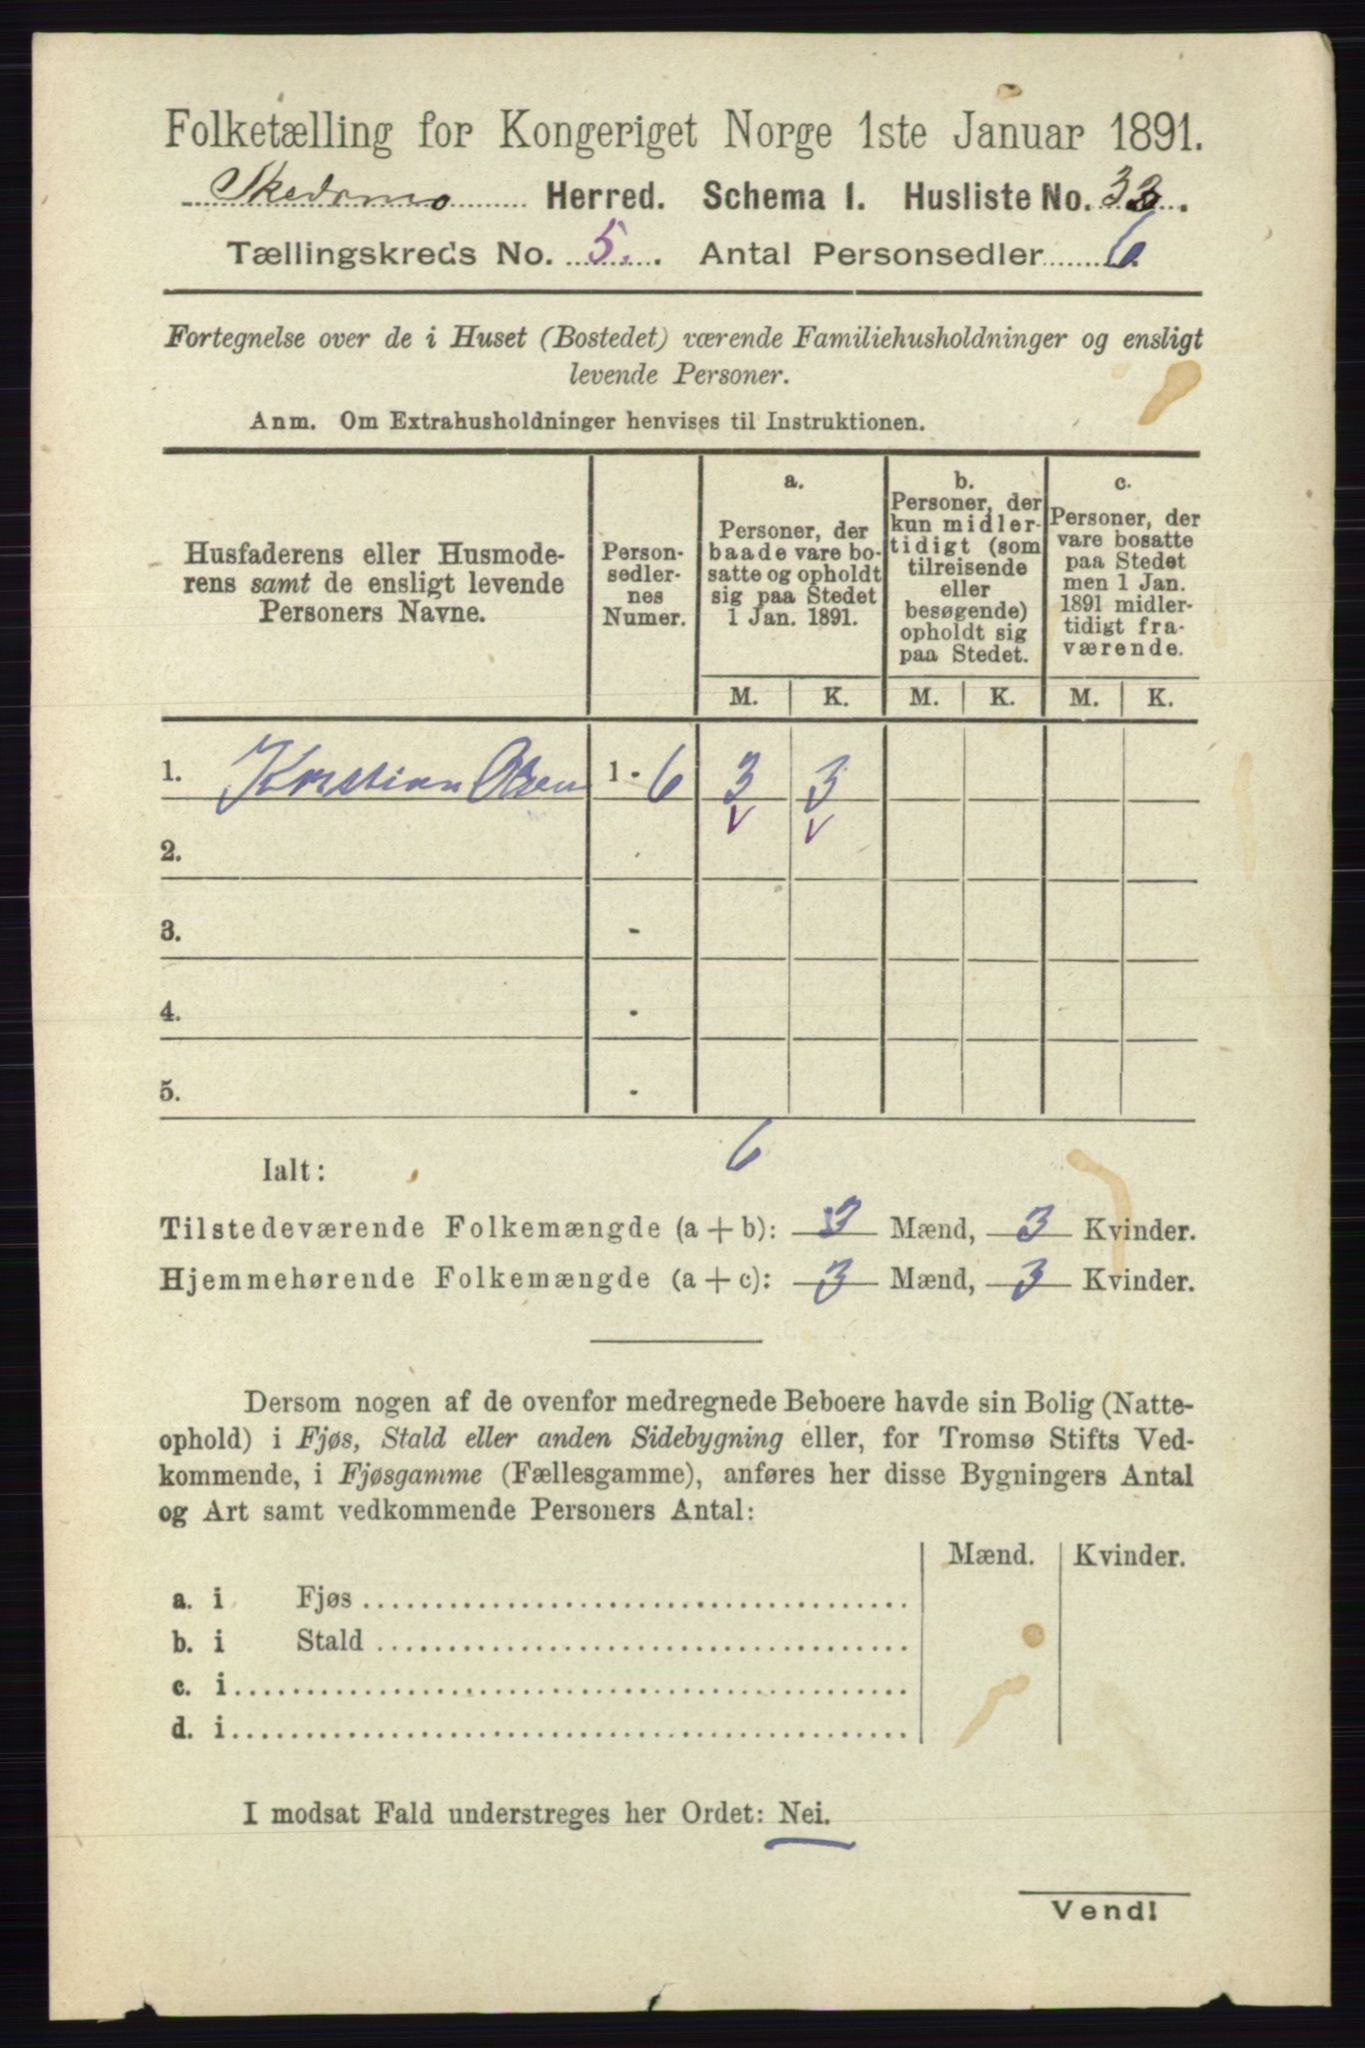 Folketælling for Kongeriget Norge 1ste Januar 1891.
Skedsmo Herred. Schema 1. Husliste No. .
Tællingskreds No. 5. Antal Personsedler 6
Fortegnelse over de i Huset (Bostedet) værende Familiehusholdninger og ensligt
levende Personer.
Anm. Om Extrahusholdninger henvises til Instruktionen.
Husfaderens eller Husmode-
rens samt de ensligt levende
Personers Navne.
Person-
sedler-
nes
Numer.
a.
Personer, der
baade vare bo-
satte og opholdt
sig paa Stedet
1 Jan. 1891.
b.
Personer, der
kun midler-
tidigt (som
tilreisende
eller
besøgende)
opholdt sig
paa Stedet.
c.
Personer, der
vare bosatte
paa Stedet
men 1 Jan.
1891 midler-
tidigt fra-
værende.
M. K. M. K. M. K.
1. Kristian Olsen 1 - 6 3 3
v v
2.
3. -
4. -
5. -
6
Ialt:
Tilstedeværende Folkemængde (a + b): 3 Mænd, 3 Kvinder.
Hjemmehørende Folkemængde (a + c): 3 Mænd, 3 Kvinder.
Dersom nogen af de ovenfor medregnede Beboere havde sin Bolig (Natte-
ophold) i Fjøs, Stald eller anden Sidebygning eller, for Tromsø Stifts Ved-
kommende, i Fjøsgamme (Fællesgamme), anføres her disse Bygningers Antal
og Art samt vedkommende Personers Antal:
Mænd. Kvinder.
a. i Fjøs
b. i Stald
c. i
d. i
I modsat Fald understreges her Ordet: Nei.
Vend!